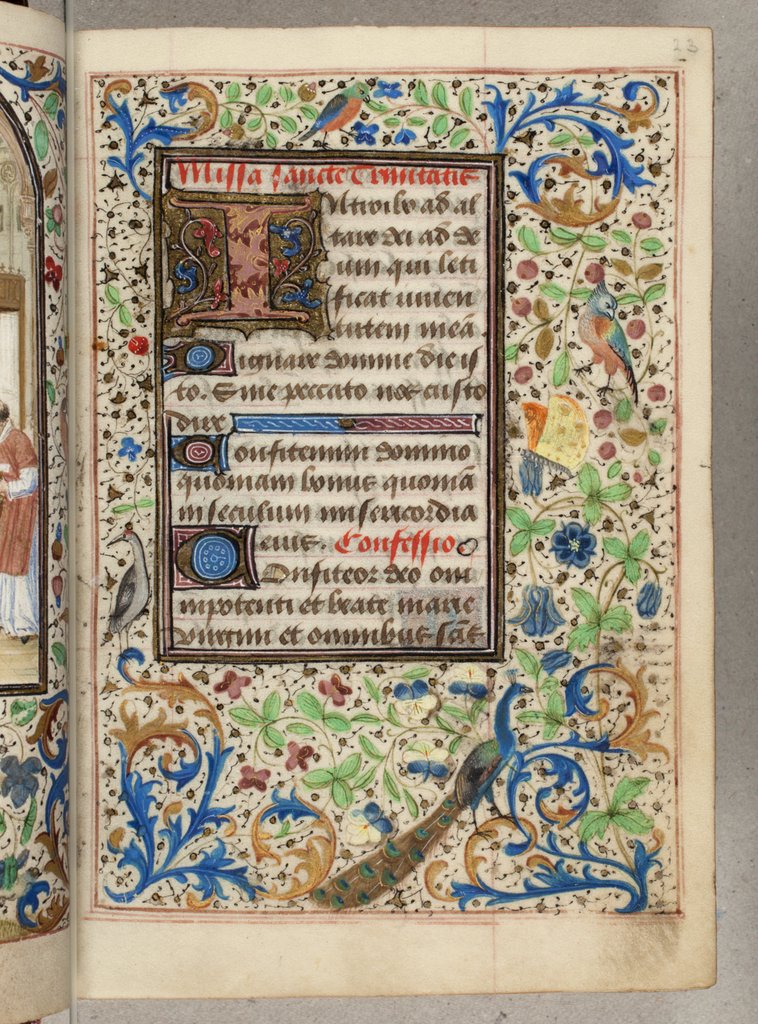 23
Missa sancte Trinitatis
INtroibo ad al
tare dei ad de
um qui leti
ficat iuuen
tutem meã.
Dignare domine die is
to. Sine peccato nos custo
dire
Confitemini domino
quoniam bonus quoniã
in seculum misericordia
eius. Confessio
Confiteor deo om
nipotenti et beate marie
virgini et omnibus sc̃is